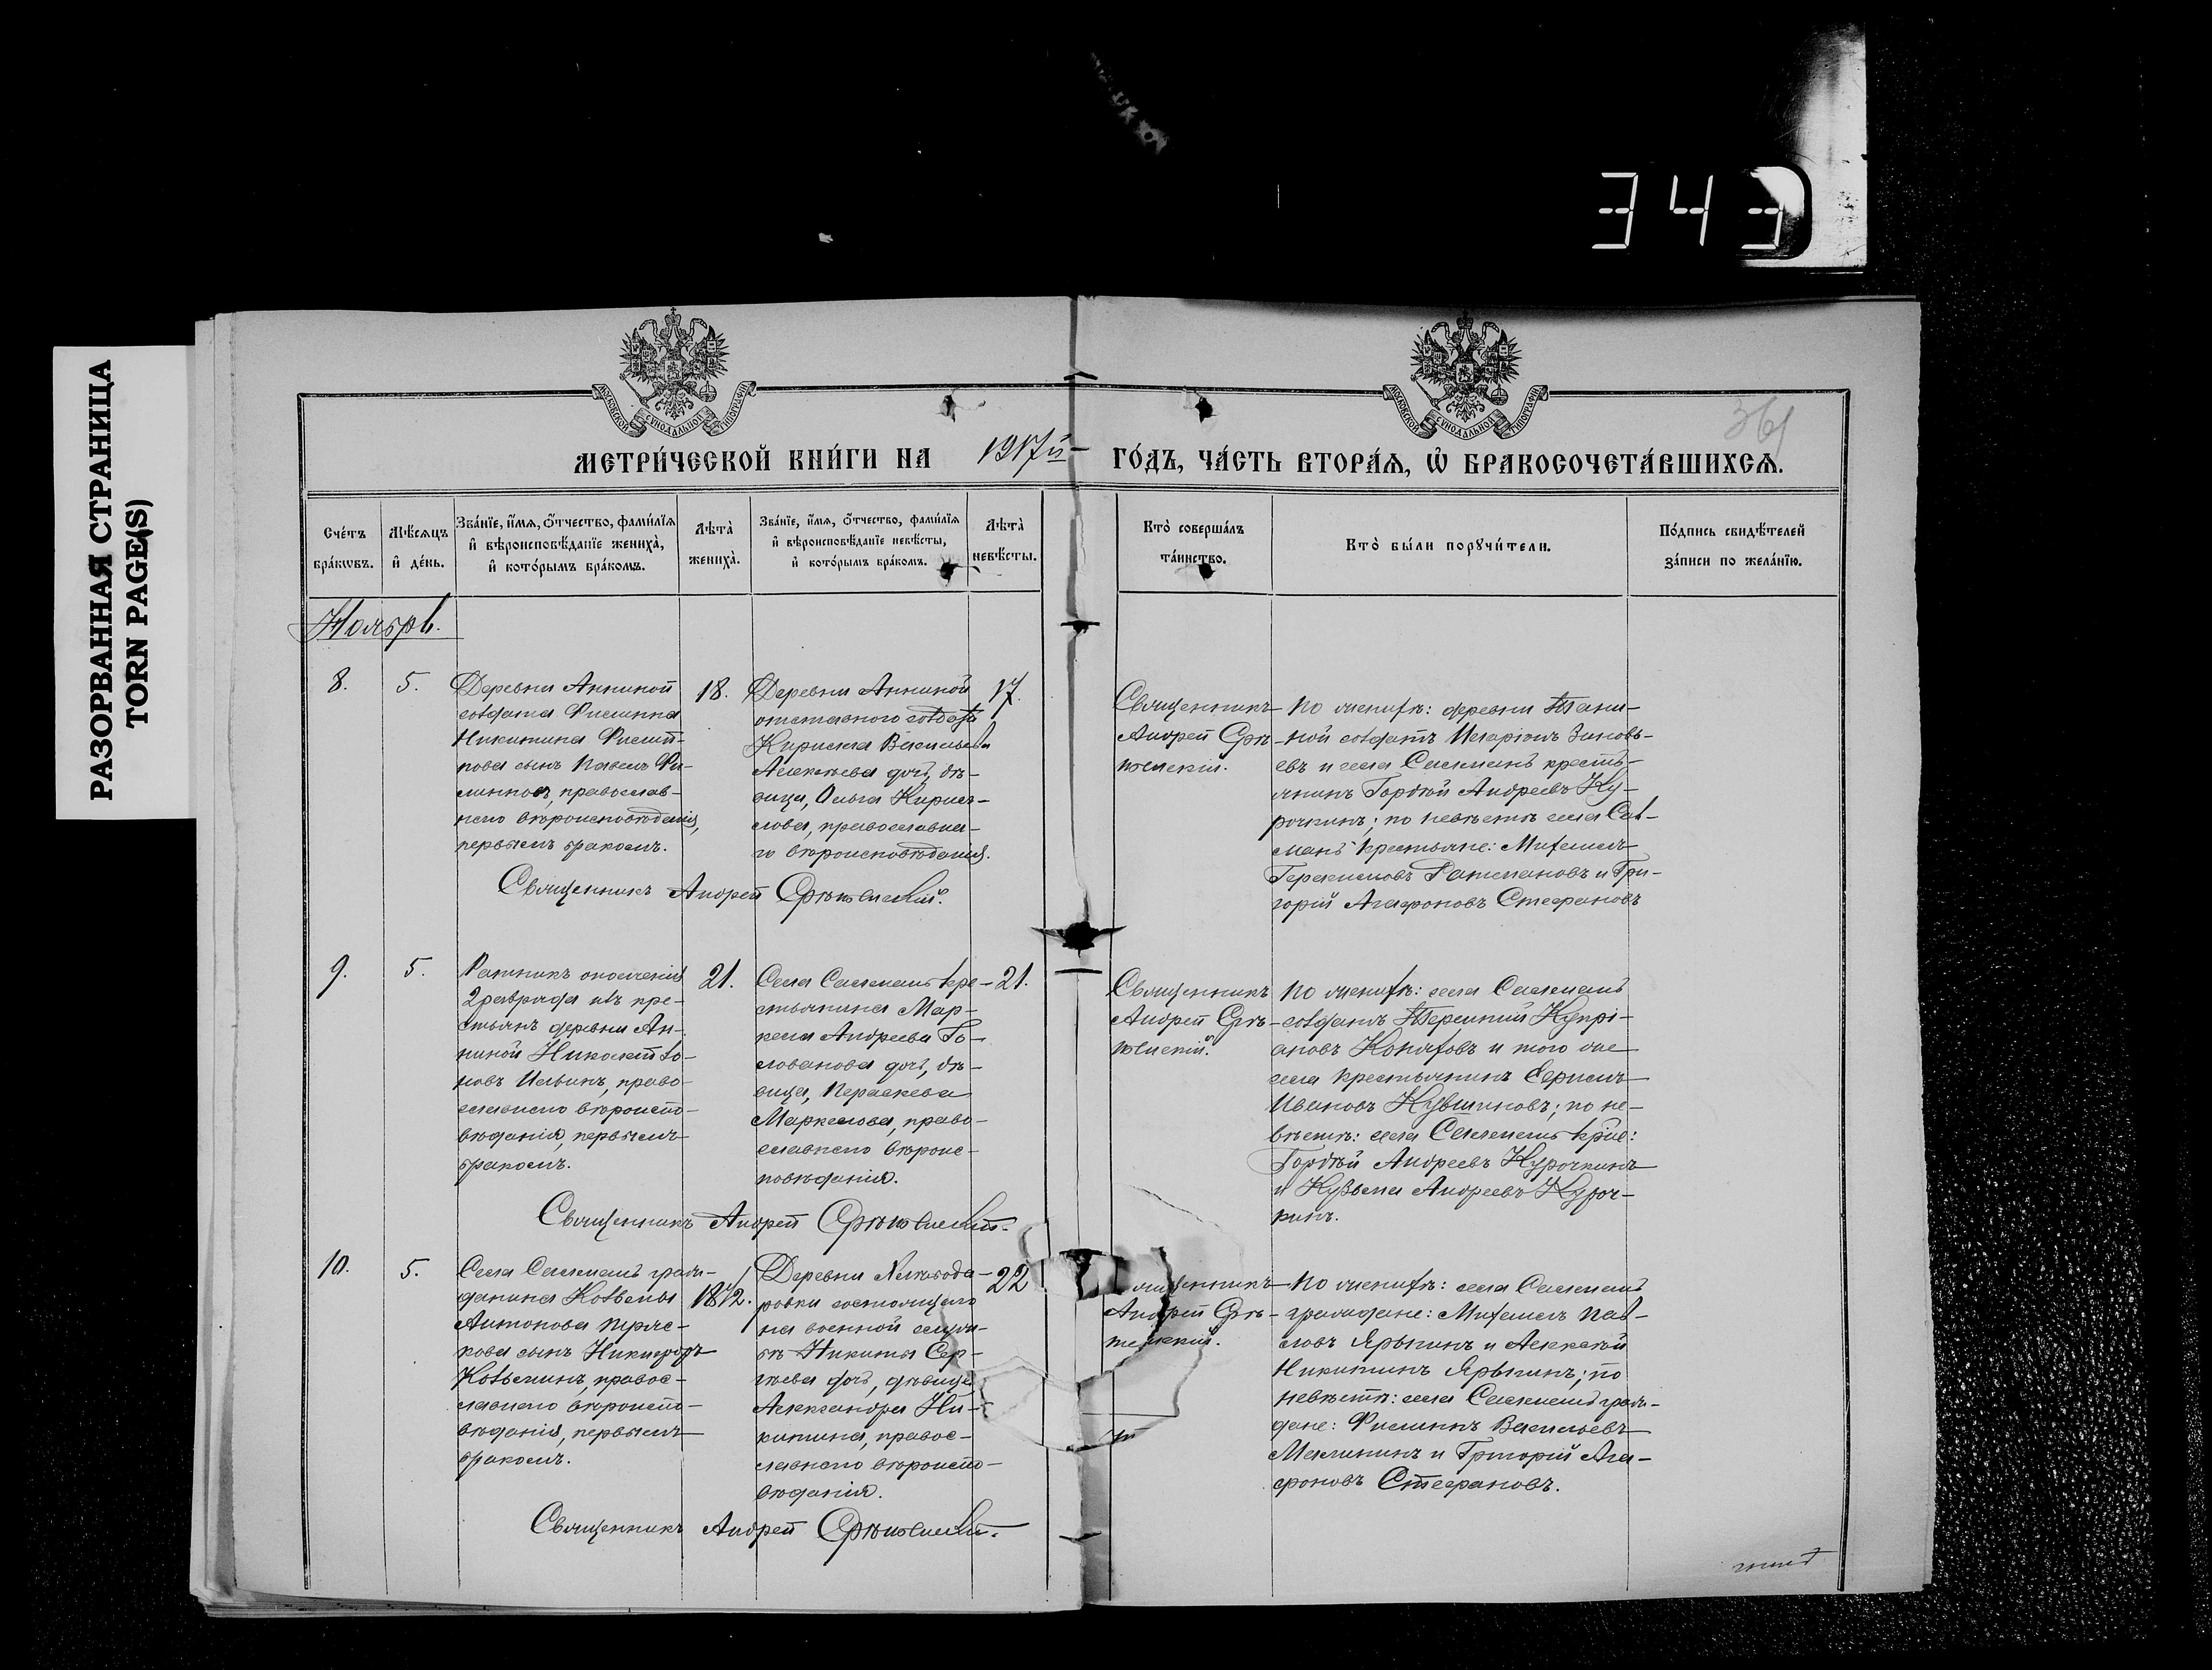 343
РАЗОРВАННАЯ СТРАНИЦА
TORN PAGE(S)
МОСКОВСКОЙ СѴНОДАЛЬНОЙ ТИПОГРАФІИ
МОСКОВСКОЙ СѴНОДАЛЬНОЙ ТИПОГРАФІИ
361
МЕТРИ́ЧЕСКОЙ КНИ́ГИ НА 1917й ГО́ДЪ, ЧА́СТЬ ВТОРА́Ѧ, Ѽ БРАКОСОЧЕТА́ВШИХСѦ.
Сче́тъ бра́кѡвъ.
Мѣ́сѧцъ и҆ де́нь.
Зва́нїе, и҆́мѧ, ѻ҆́тчество, фами́лїѧ
и҆ вѣроисповѣ́данїе жениха̀,
и҆ кото́рымъ бра́комъ.
Лѣта̀ жениха̀.
Зва́нїе, и҆́мѧ, ѻ҆́тчество, фами́лїѧ
и҆ вѣроисповѣ́данїе невѣ́сты,
и҆ кото́рымъ бра́комъ.
Лѣта̀ невѣ́сты.
Кто̀ соверша́лъ та́инство.
Кто̀ бы́ли порꙋчи́тели.
По́дпись свидѣ́телей
за́писи по жела́нїю.
Ноябрь.
8.
5.
Деревни Анниной
солдата Филиппа
Никитина Филип-
пова сынъ Павелъ Фи-
липповъ, православ-
наго вѣроисповѣданія,
первымъ бракомъ.
18.
Деревни Анниной
отставного солдата
Кирилла Васильева
Алексѣева дочь, дѣ-
вица, Ольга Кирил-
лова, православна-
го вѣроисповѣданія.
17.
Священникъ
Андрей Срѣ-
тенскій.
По женихѣ: деревни
солдатъ Иларіонъ Зиновь-
евъ и села Салмань кресть-
янинъ Гордѣй Андреевъ Ку-
рочкинъ; по невѣстѣ села Сал-
мань крестьяне: Михаилъ
и Гри-
горій Агафоновъ Стефановъ
Священникъ Андрей Срѣтенскій.
9.
5.
Ратникъ ополченія
2 разряда изъ кре-
стьянъ деревни Ан-
ниной Николай
Ильинъ, право-
славнаго вѣроиспо-
вѣданія, первымъ
бракомъ.
21.
Села Салмань кре-
стьянина Мар-
кела Андреева Го-
лованова дочь, дѣ-
вица, Параскева
Маркелова, право-
славнаго вѣроис-
повѣданія.
21.
Священникъ
Андрей Срѣ-
тенскій.
По женихѣ: села Салмань
солдатъ Терентій Купрі-
ановъ и того же
села крестьянинъ
Ивановъ Кувшиновъ; по не-
вѣстѣ: села Салмань
Гордѣй Андреевъ Курочкинъ
и Кузьма Андреевъ Куроч-
кинъ.
Священникъ Андрей Срѣтенскій.
10.
5.
Села Салмань граж-
данина Козьмы
Антонова
сынъ Никифоръ
Козьминъ, правос-
лавнаго вѣроиспо-
вѣданія, первымъ
бракомъ.
18 1/2.
Деревни
состоящаго
на военной служ-
бѣ Никиты Сер-
гѣева дочь, дѣвица
Александра Ни-
китина, правос-
лавнаго вѣроиспо-
вѣданія.
22
Священникъ
Андрей Срѣ-
тенскій.
По женихѣ: села Салмань
граждане: Михаилъ Пав-
ловъ Ярынинъ и Алексѣй
Никитинъ Ярынинъ; по
невѣстѣ: села Салмань граж-
дане: Филиппъ Васильевъ
Малининъ и Григорій Ага-
фоновъ Стефановъ.
Священникъ Андрей Срѣтенскій.